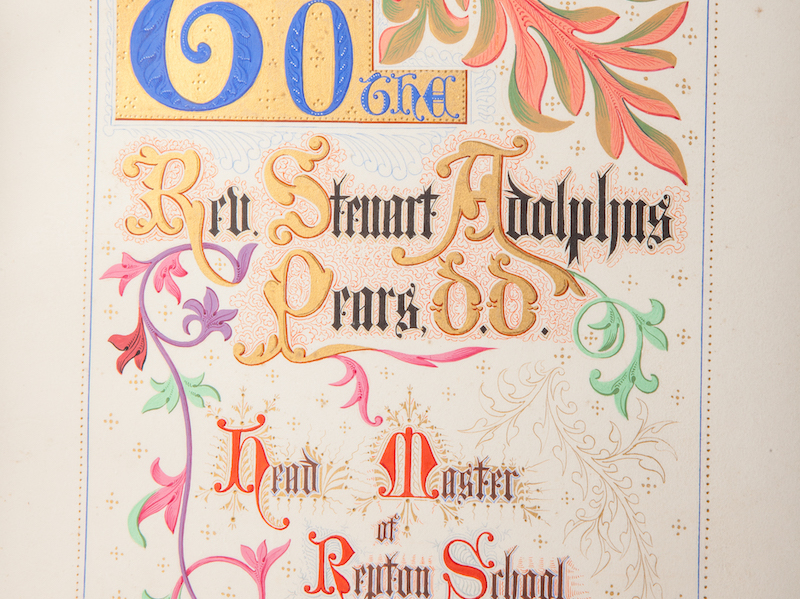 To the
Rev. Steuart Adolphus
Pears, D.D.
Head Master
of
Repton School